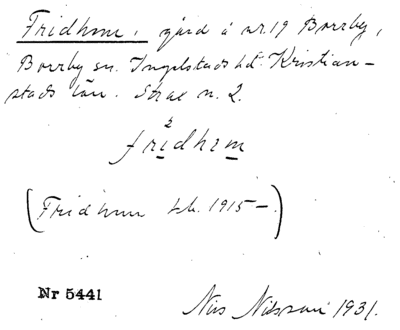 Fridhem, gård å nr 19 Borrby,
Borrby sn. Ingelstads hd. Kristian-
stads län. Strax n. 2.
2
fridhem
(Fridhem Lk. 1915-.)
Nr 5441
Nils Nilsson 1931.